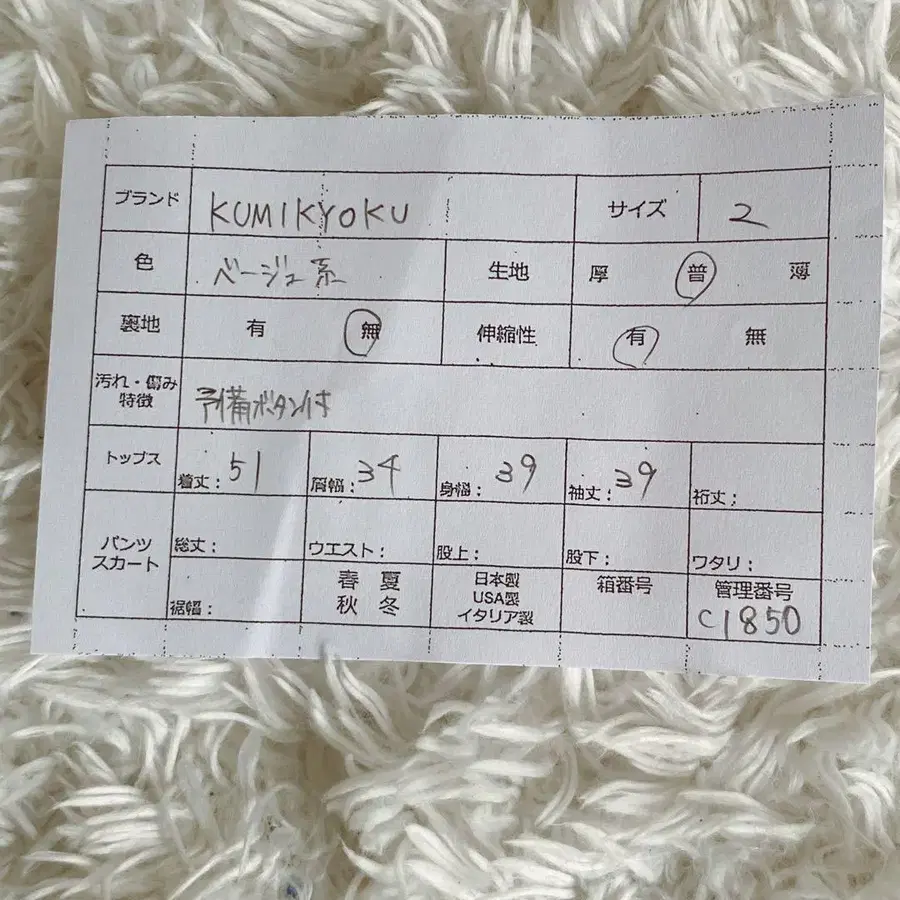 ブランド KUMIKYOKU サイズ 2
色 ベージュ系 生地 厚 普 薄
裏地 有 無 伸縮性 有 無
汚れ・傷み
特徴
予備ボタン付
トップス 着丈: 51 肩幅: 34 身幅: 39 袖丈: 39 裄丈:
パンツ
スカート
総丈: ウエスト: 股上: 股下: ワタリ:
裾幅:
春 夏
秋 冬
日本製
USA製
イタリア製
箱番号
管理番号
C1850